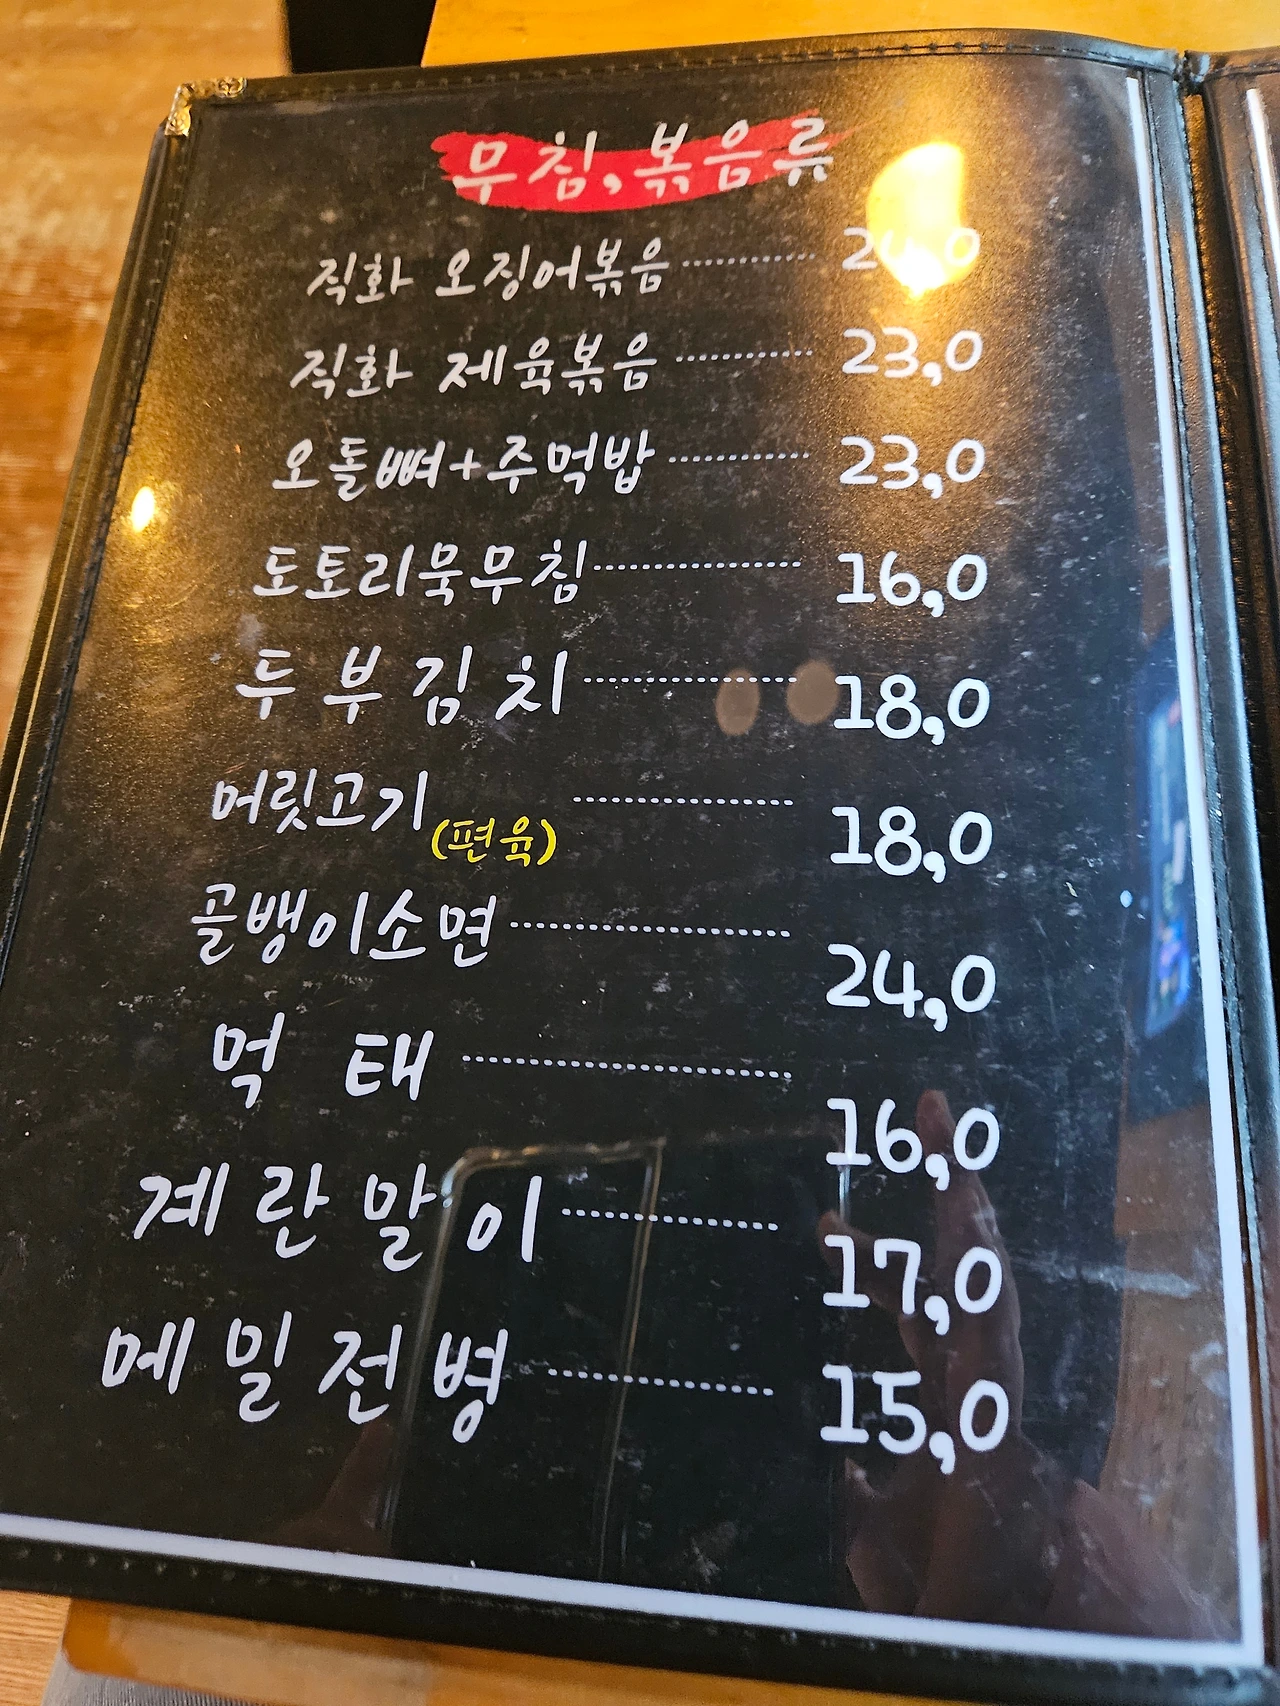 무침, 볶음류
직화 오징어볶음 ............ 24,0
직화 제육볶음 ............ 23,0
오돌뼈+주먹밥 ............ 23,0
도토리묵무침 ............ 16,0
두부김치 ............ 18,0
머릿고기 (편육) ............ 18,0
골뱅이소면 ............ 24,0
먹태 ............ 16,0
계란말이 ............ 17,0
메밀전병 ............ 15,0